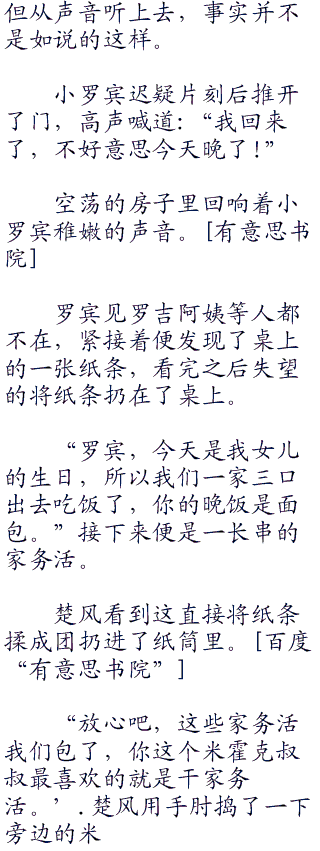 但从声音听上去，事实并不
是如说的这样。
小罗宾迟疑片刻后推开
了门，高声喊道：“我回来
了，不好意思今天晚了！”
空荡的房子里回响着小
罗宾稚嫩的声音。[有意思书
院]
罗宾见罗吉阿姨等人都
不在，紧接着便发现了桌上
的一张纸条，看完之后失望
的将纸条扔在了桌上。
“罗宾，今天是我女儿
的生日，所以我们一家三口
出去吃饭了，你的晚饭是面
包。”接下来便是一长串的
家务活。
楚风看到这直接将纸条
揉成团扔进了纸筒里。[百度
“有意思书院”]
“放心吧，这些家务活
我们包了，你这个米霍克叔
叔最喜欢的就是干家务
活。’.楚风用手肘捣了一下
旁边的米